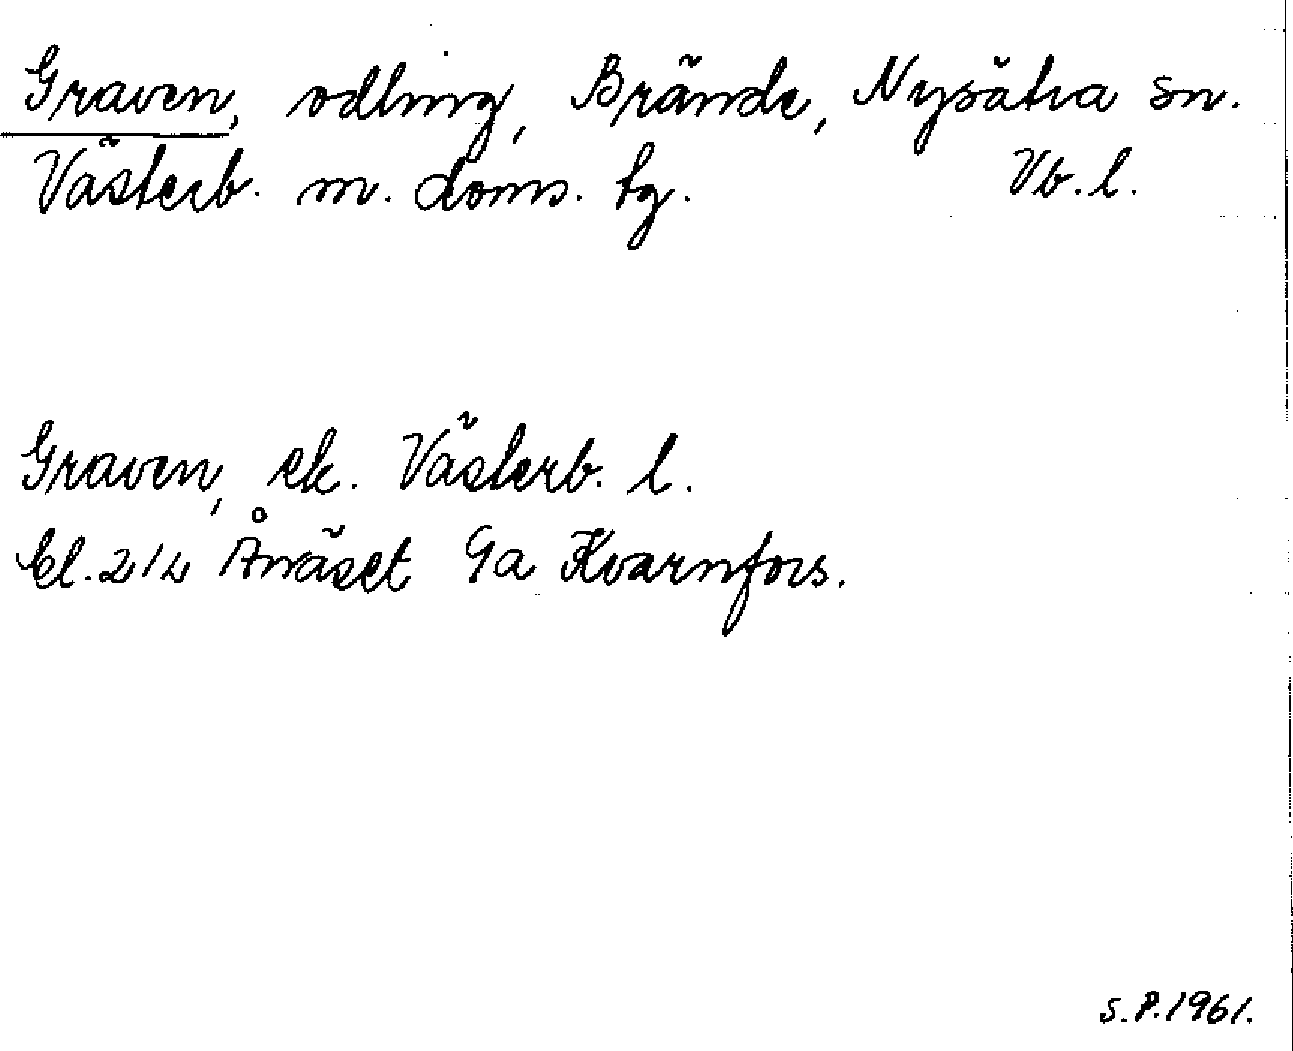 Graven, odling, Brände, Nysätra sn.
Västerb. m. doms. tg. Vb. l.
Graven, ek. Västerb. l.
bl. 214 Ånäset 9a Kvarnfors.
S.P. 1961.